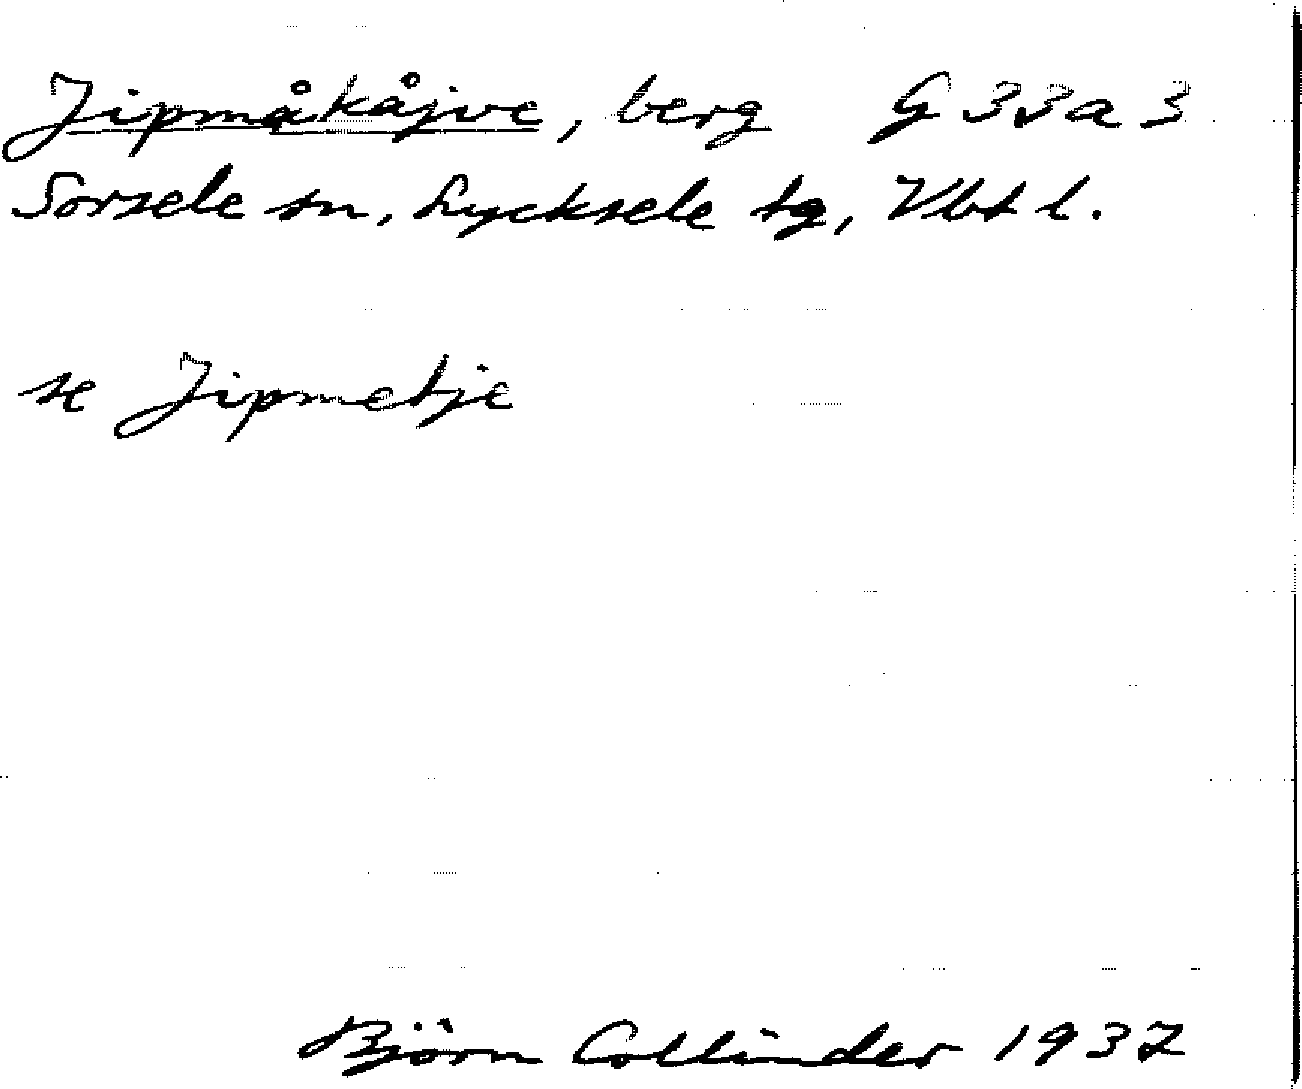 Jipmåkåjve, berg G 33a 3
Sorsele sn, Lycksele tg, Vbt l.
se Jipmetje
Björn Collinder 1937